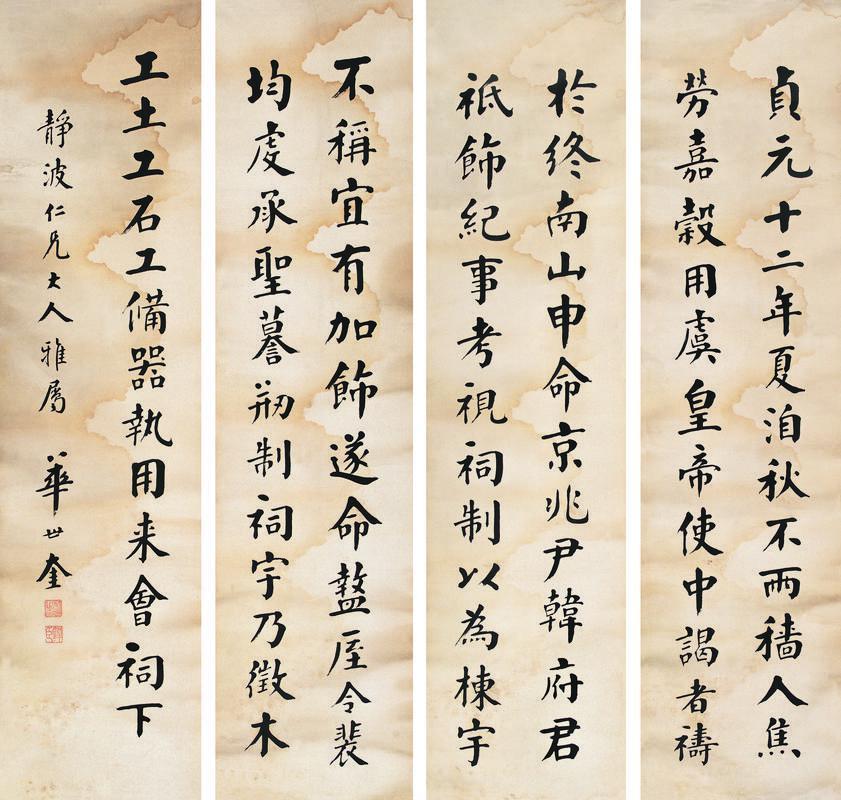 貞元十二年夏洎秋不雨穡人焦
勞嘉穀用虞皇帝使中謁者禱
於終南山申命京兆尹韓府君
祗飾紀事考視祠制以為棟宇
不稱宜有加飾遂命盩厔令裴
均虔承聖謩刱制祠宇乃徵木
工土工石工備器執用来會祠下
靜波仁兄大人雅屬
華世奎